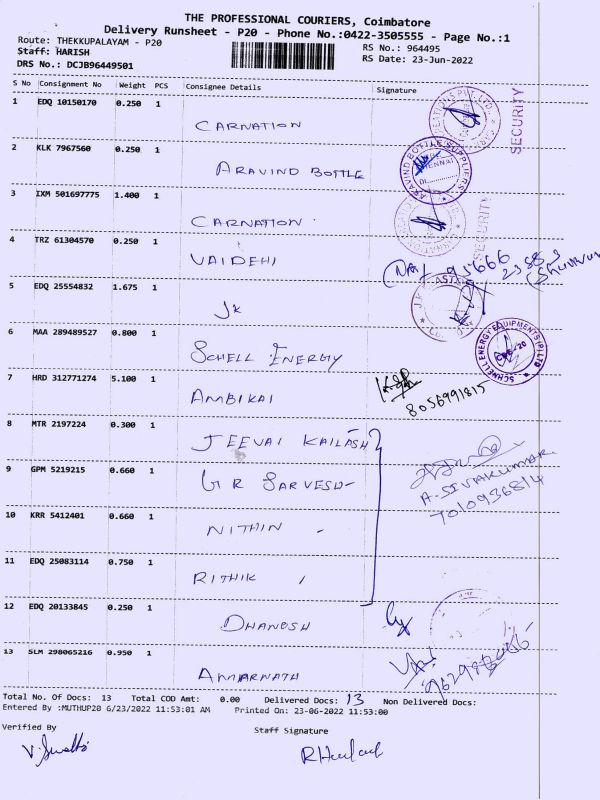 THE PROFESSIONAL COURIERS, Coimbatore
Delivery Runsheet - P20 - Phone No.:0422-3505555 - Page No.:1
Route: THEKKUPALAYAM - P20
RS No.: 964495
Staff: HARISH
RS Date: 23-Jun-2022
DRS No.: DCJB96449501
S No Consignment No Weight PCS Consignee Details Signature
1 EDQ 10150170 0.250 1
CARNATION
SECURITY
2 KLK 7967560 0.250 1
ARAVIND BOTTLE
ARAVIND BOTTLE SUPPLIERS
3 IXM 501697775 1.400 1
CARNATION
SECURITY
4 TRZ 61304570 0.250 1
VAIDEHI
95666
5 EDQ 25554832 1.675 1
JK
6 MAA 289489527 0.800 1
SCHELL ENERGY
SCHNELL ENERGY EQUIPMENTS (P) LTD
CBE-20
7 HRD 312771274 5.100 1
AMBIKAI
8056991815
8 MTR 2197224 0.300 1
JEEVAI KAILASH
9 GPM 5219215 0.660 1
G R SARVESH
A.SIVAKUMAR
7010936814
10 KRR 5412401 0.660 1
NITHIN
11 EDQ 25083114 0.750 1
RITHIK
12 EDQ 20133845 0.250 1
DHANOSH
13 SLM 298065216 0.950 1
AMARNATH
Total No. Of Docs: 13 Total COD Amt: 0.00 Delivered Docs: 13 Non Delivered Docs:
Entered By :MUTHUP20 6/23/2022 11:53:01 AM Printed On: 23-06-2022 11:53:00
Verified By
Staff Signature